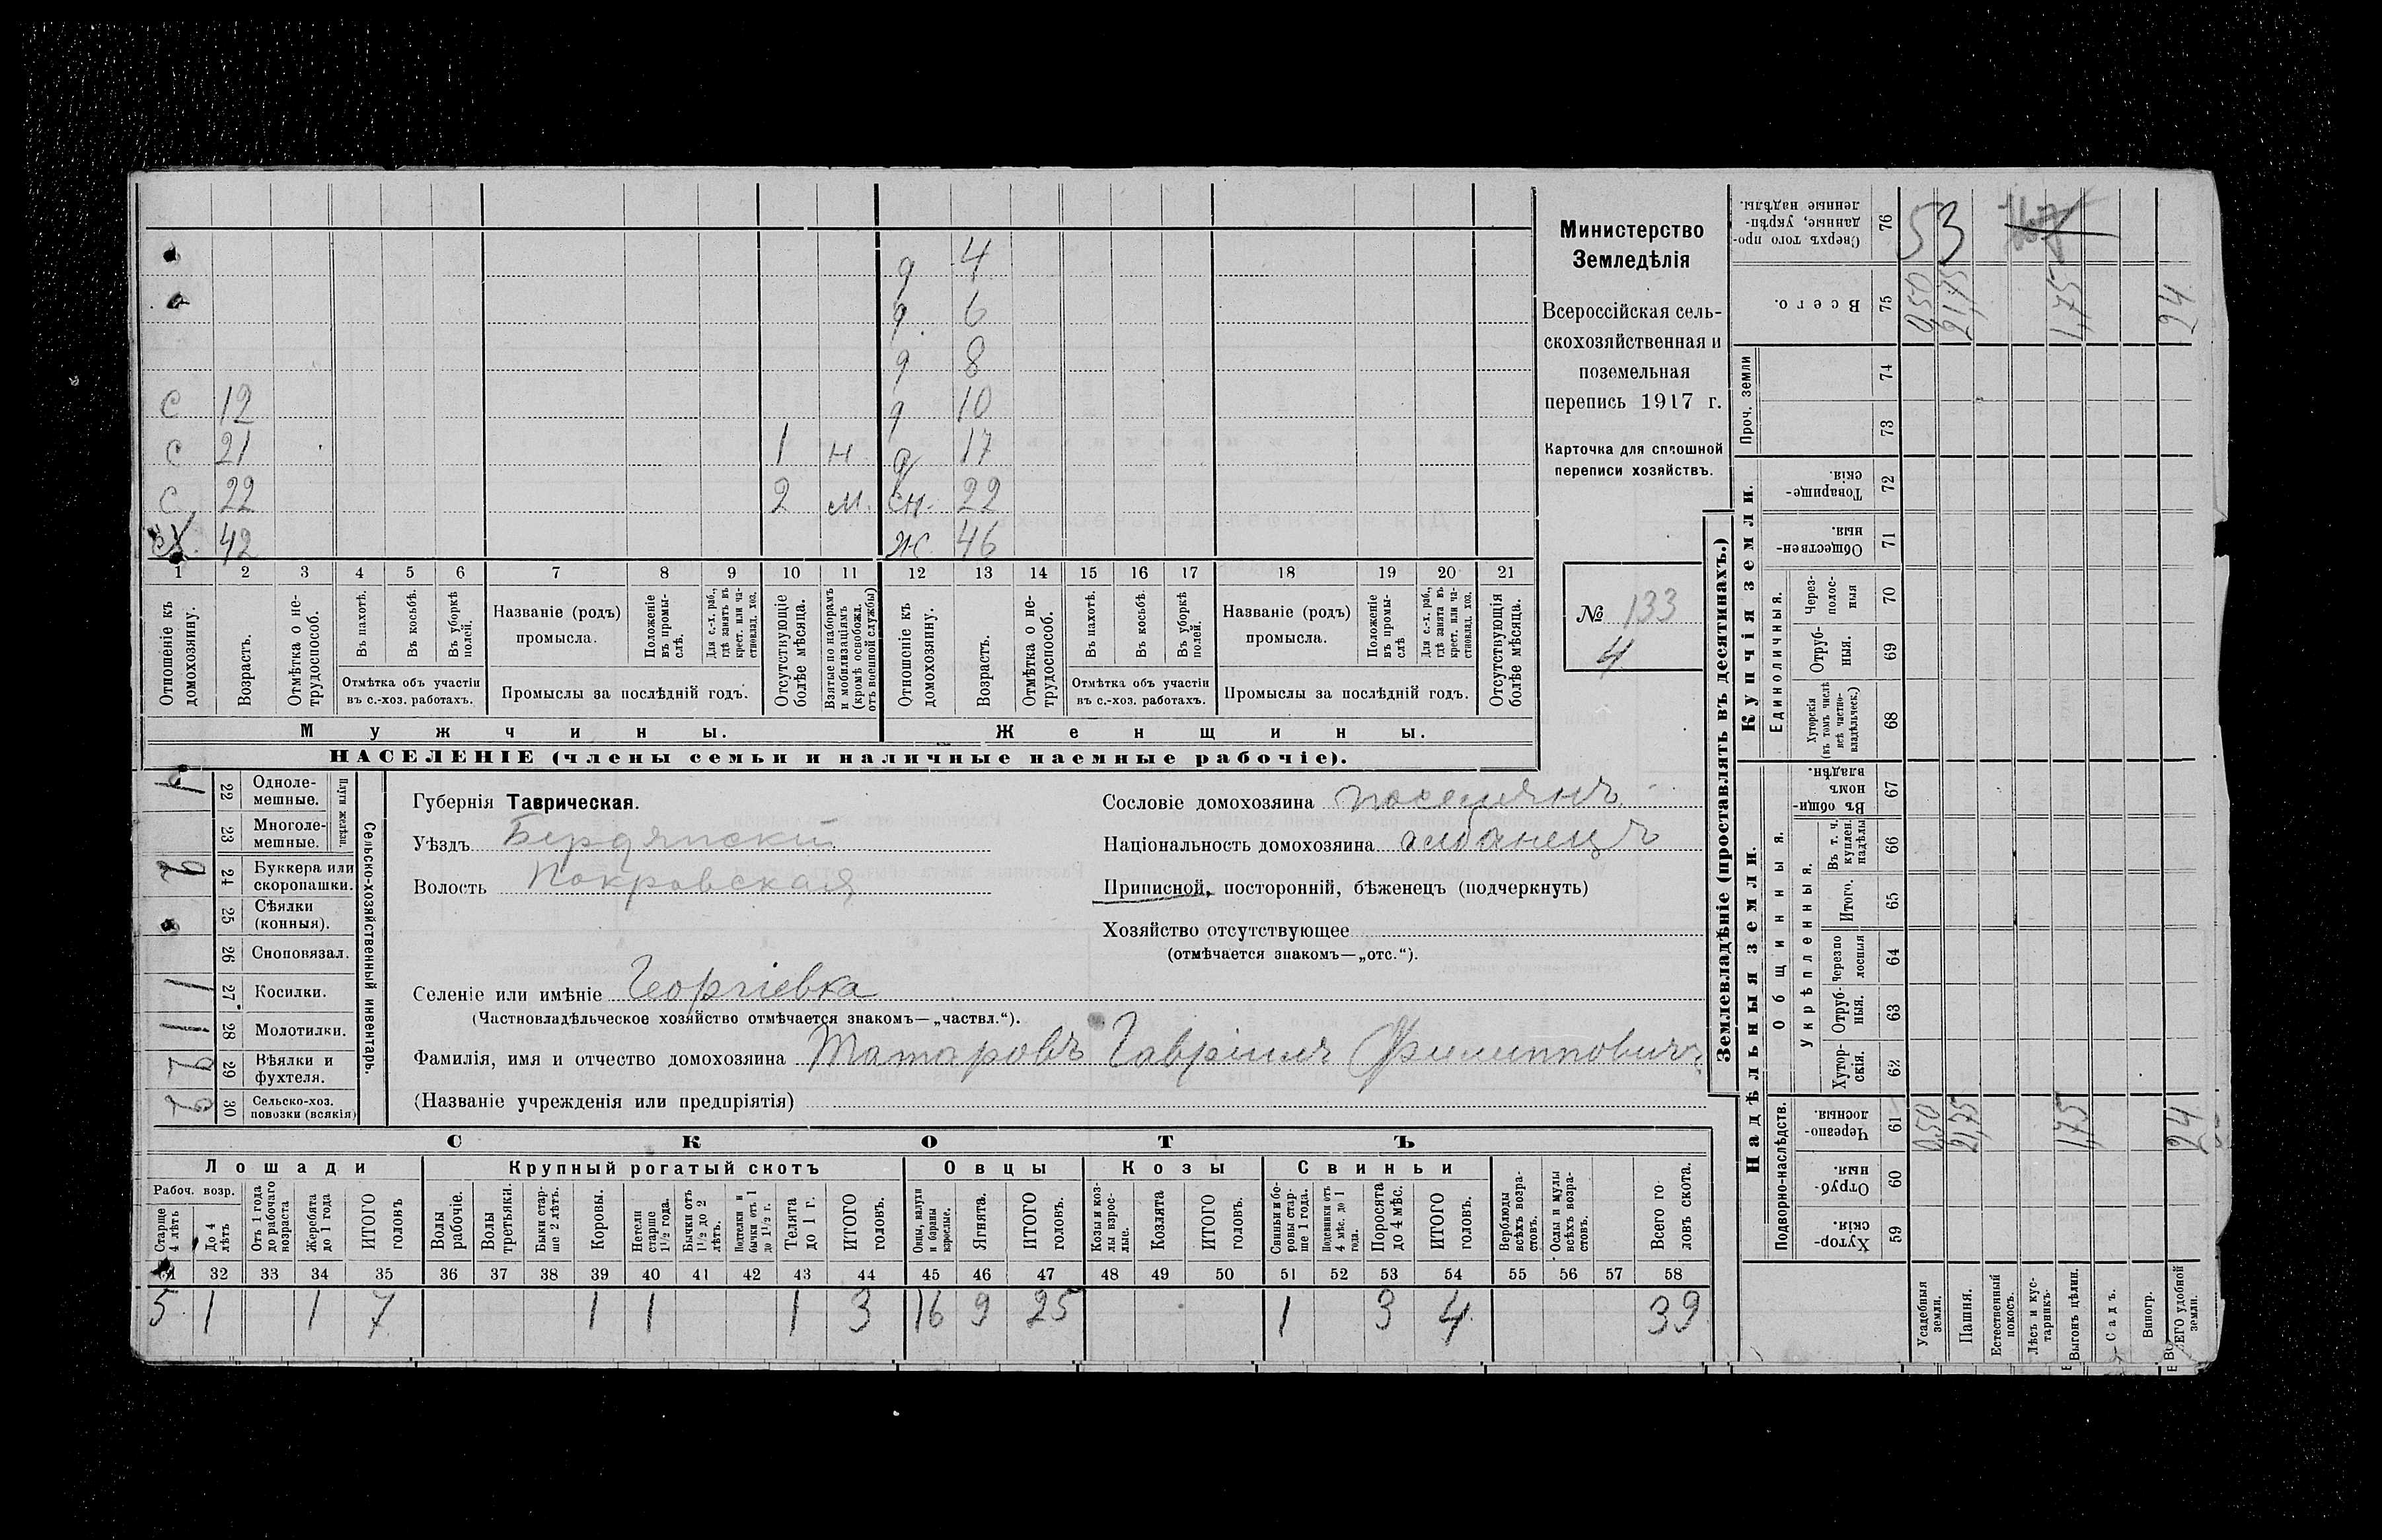 Министерство
Земледѣлія
Всероссійская сель-
скохозяйственная и
поземельная
перепись 1917 г.
Карточка для сплошной
переписи хозяйствъ.
№ 133
4
д 4
д 6
д 8
с 12 д 10
с 21 1 н д 17
с 22 2 м. сн. 22
сх. 42 ж 46
1 2 3 4 5 6 7 8 9 10 11 12 13 14 15 16 17 18 19 20 21
Отношеніе къ домохозяину.
Возрастъ.
Отмѣтка о не-трудоспособ.
Въ пахотѣ.
Въ косьбѣ.
Въ уборкѣ полей.
Отмѣтка объ участіи въ с.-хоз. работахъ.
Названіе (родъ) промысла.
Положеніе въ промы-слѣ.
Для с.-х. раб., гдѣ занятъ въ крест. или ча-стновлад. хоз.
Промыслы за послѣдній годъ.
Отсутствующіе болѣе мѣсяца.
Взятые по наборамъ и мобилизаціямъ (кромѣ освобожд. отъ военной службы)
Отношеніе къ домохозяину.
Возрастъ.
Отмѣтка о не-трудоспособ.
Въ пахотѣ.
Въ косьбѣ.
Въ уборкѣ полей.
Отмѣтка объ участіи въ с.-хоз. работахъ.
Названіе (родъ) промысла.
Положеніе въ промы-слѣ
Для с.-х. раб., гдѣ занята въ крест. или ча-стновлад. хоз.
Промыслы за послѣдній годъ.
Отсутствующія болѣе мѣсяца.
Мужчины. Женщины.
НАСЕЛЕНІЕ (члены семьи и наличные наемные рабочіе).
Сельско-хозяйственный инвентарь.
Плуги желѣзн.
1 22 Одноле-мешные.
23 Многоле-мешные.
24 Буккера или скоропашки.
25 Сѣялки (конныя).
26 Сноповязал.
1 27 Косилки.
1 28 Молотилки.
29 Вѣялки и фухтеля.
30 Сельско-хоз. повозки (всякія)
Губернія Таврическая.
Уѣздъ Бердянскій
Волость Покровская
Сословіе домохозяина поселянинъ
Національность домохозяина албанецъ
Приписной, посторонній, бѣженецъ (подчеркнуть)
Хозяйство отсутствующее
(отмѣчается знакомъ—„отс.“).
Селеніе или имѣніе Георгіевка
(Частновладѣльческое хозяйство отмѣчается знакомъ—„частвл.“).
Фамилія, имя и отчество домохозяина Татаровъ Гавріилъ Филипповичъ
(Названіе учрежденія или предпріятія)
СКОТЪ
Лошади Крупный рогатый скотъ Овцы Козы Свиньи
Рабоч. возр.
Старше 4 лѣтъ
До 4 лѣтъ
Отъ 1 года до рабочаго возраста
Жеребята до 1 года
ИТОГО головъ
Волы рабочіе.
Волы третьяки.
Быки стар-ше 2 лѣтъ.
Коровы.
Нетели старше 1½ года.
Бычки отъ 1½ до 2 лѣтъ.
Подтелки и бычки отъ 1 до 1½ г.
Телята до 1 г.
ИТОГО головъ.
Овцы, валухи и бараны взрослые.
Ягнята.
ИТОГО головъ.
Козы и коз-лы взрос-лые.
Козлята
ИТОГО головъ.
Свиньи и бо-ровы стар-ше 1 года.
Подсвинки отъ 4 мѣс. до 1 года.
Поросята до 4 мѣс.
ИТОГО головъ.
Верблюды всѣхъ возра-стовъ.
Ослы и мулы всѣхъ возра-стовъ.
Всего го-ловъ скота.
32 33 34 35 36 37 38 39 40 41 42 43 44 45 46 47 48 49 50 51 52 53 54 55 56 57 58
5 1 1 7 1 1 1 3 16 9 25 1 3 4 39
Землевладѣніе (проставлять въ десятинахъ.)
Надѣльныя земли.
Купчія земли.
Проч. земли
Подворно-наслѣдств.
Общинныя.
Укрѣпленныя.
Единоличныя.
59 Хутор-скія.
60 Отруб-ныя.
61 Черезпо-лосныя.
62 Хутор-скія.
63 Отруб-ныя.
64 Черезпо-лосныя
65 Итого.
66 Въ т. ч. куплен. надѣлы
67 Въ общин-номъ владѣн.
68 Хуторскія (въ томъ числѣ всѣ частно-владѣльческ.)
69 Отруб-ныя.
70 Через-полос-ныя
71 Обществен-ныя.
72 Товарище-скія
73
74
75 Всего.
76 Сверхъ того про-данные, укрѣп-ленные надѣлы.
53
Усадебныя земли. 0,50 0,50
Пашня. 21,75 21,75
Естественный покосъ.
Лѣсъ и кус-тарникъ.
Выгонъ цѣлин. 1,75 1,75
Садъ.
Виногр.
ВСЕГО удобной земли. 24 24